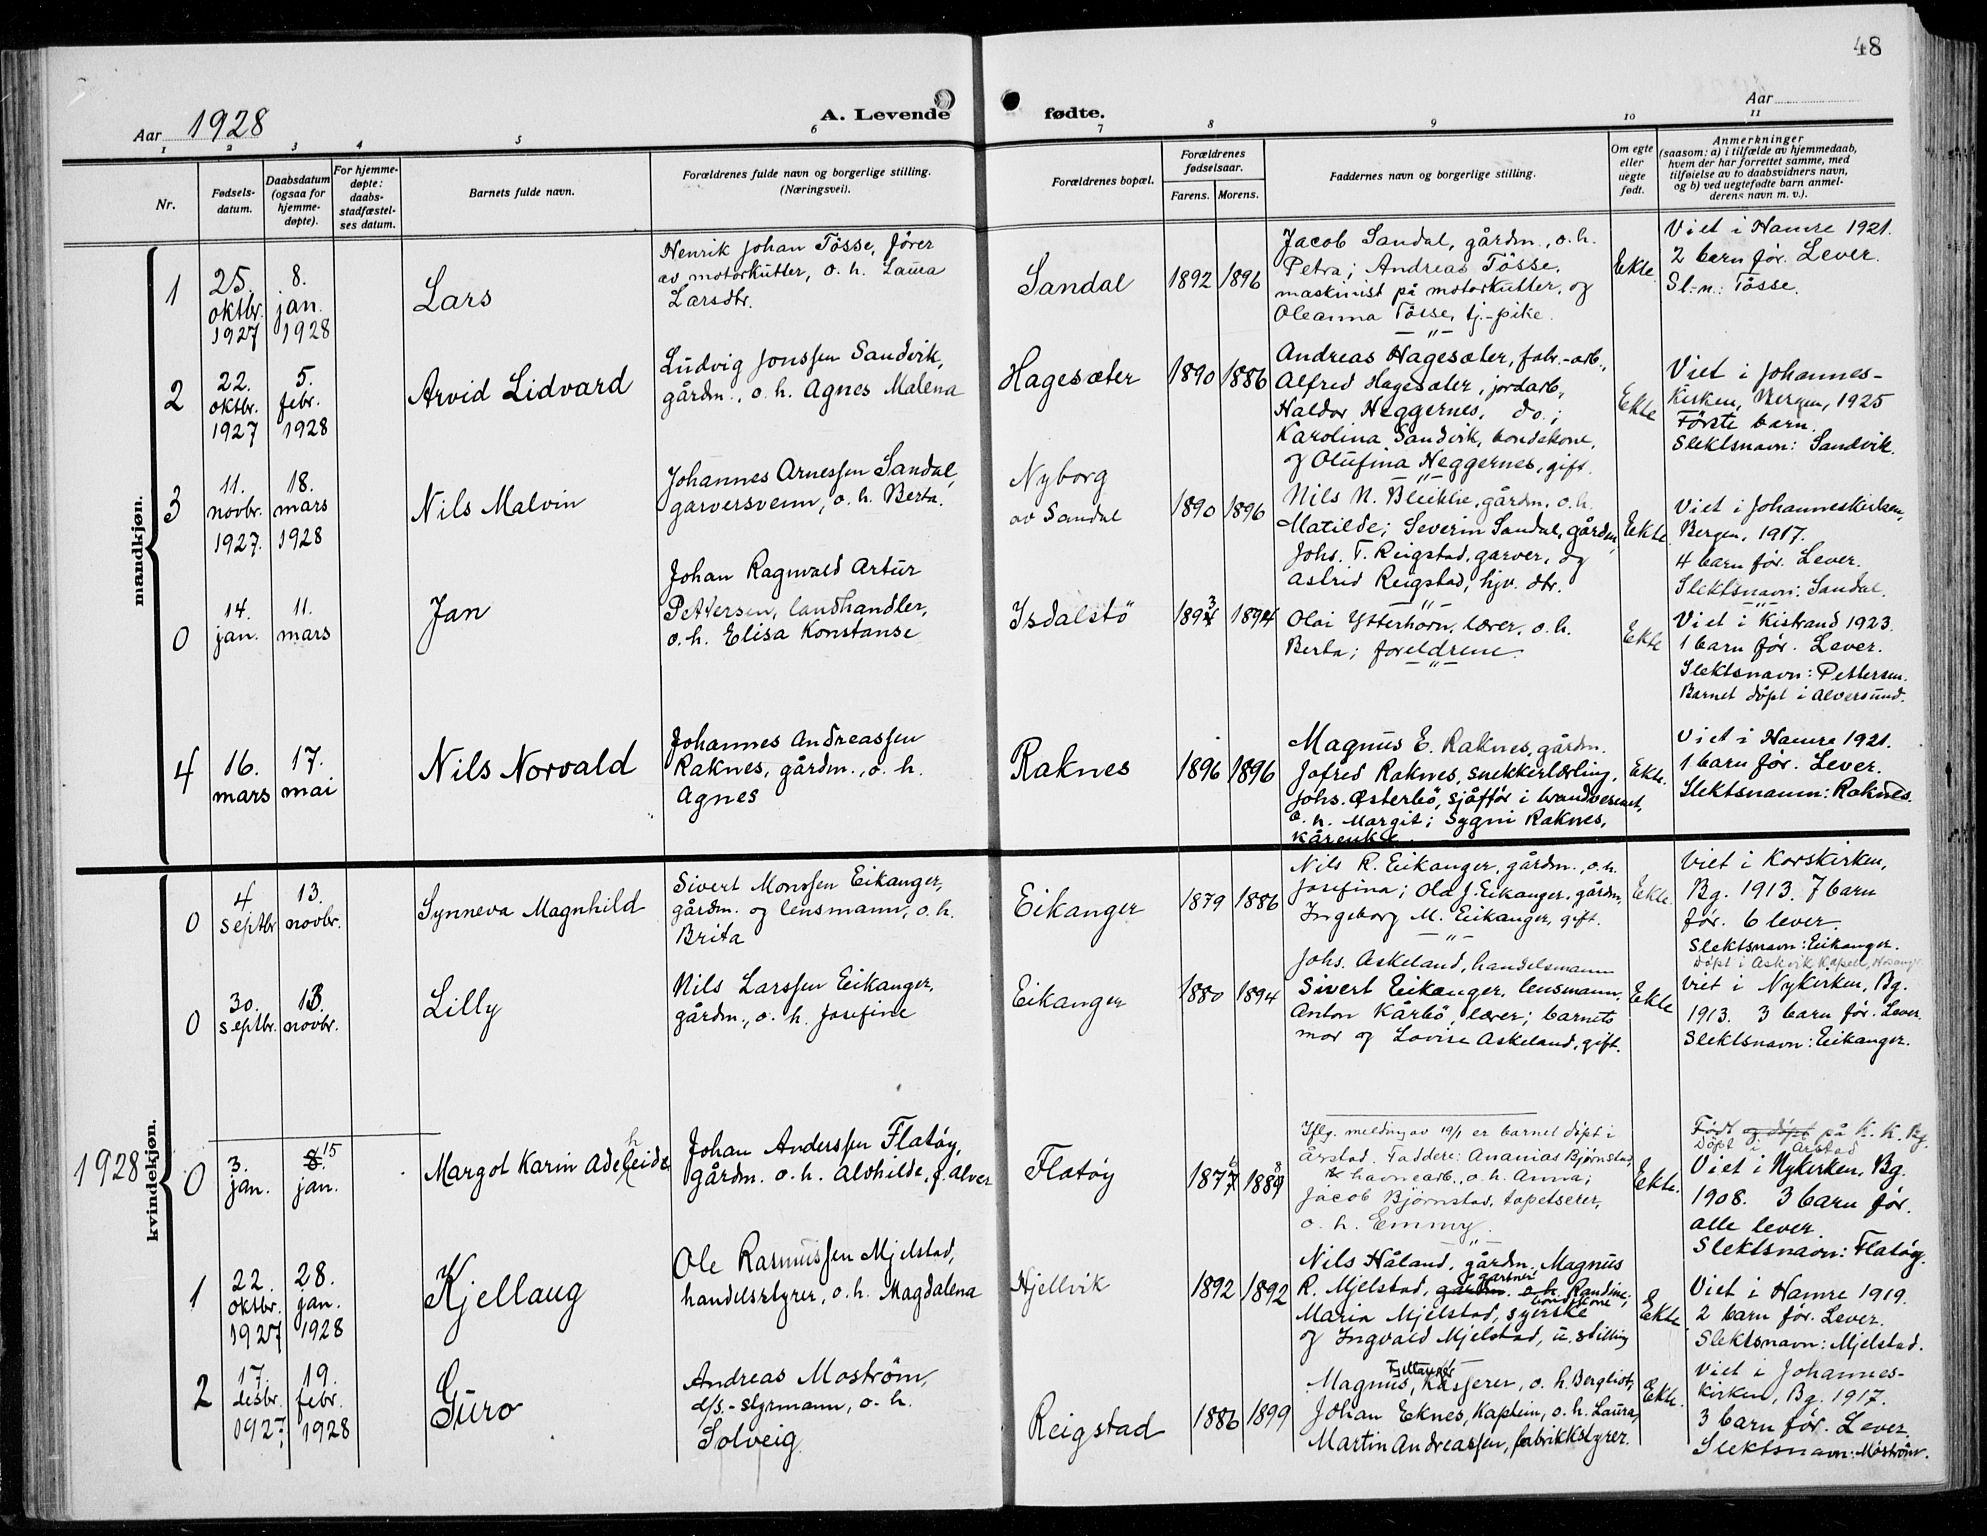 48
Aar 1928
A. Levende fødte.
Aar
1 2 3 4 5 6 7 8 9 10 11
Nr.
Fødsels-
datum.
Daabsdatum
(ogsaa for
hjemme-
døpte).
For hjemme-
døpte:
daabs-
stadfæstel-
ses datum.
Barnets fulde navn.
Forældrenes fulde navn og borgerlige stilling.
(Næringsvei).
Forældrenes bopæl.
Forældrenes
fødselsaar.
Farens. Morens.
Faddernes navn og borgerlige stilling.
Om egte
eller
uegte
født.
Anmerkninger
(saasom: a) i tilfælde av hjemmedaab,
hvem der har forrettet samme, med
tilføielse av to daabsvidners navn,
og b) ved uegtefødte barn anmel-
derens navn m. v.).
mandkjøn.
1
25.
oktbr.
1927
8.
jan.
1928
Lars
Henrik Johan Tösse, förer
av motorkutter, o. h. Laura
Larsdtr.
Sandal
1892 1896
Jacob Sandal, gårdm., o. h.
Petra; Andreas Tösse,
maskinist på motorkutter, og
Oleanna Tösse, tj.-pike.
Ekte
Viet i Hamre 1921.
2 barn før. Lever.
Sl.-n.: Tösse.
2
22.
oktbr.
1927
5.
febr.
1928
Arvid Lidvard
Ludvig Jonssen Sandvik,
gårdm., o. h. Agnes Malena
Hagesæter
1890 1886
Andreas Hagesæter, fabr.-arb.,
Alfred Hagesæter, jordarb,
Haldor Heggernes, do.;
Karolina Sandvik, bondekone,
og Olufina Heggernes, gift.
Ekte
Viet i Johannes-
kirken, Bergen, 1925
Første barn.
Slektsnavn: Sandvik.
3
11.
novbr.
1927.
18.
mars
1928
Nils Malvin
Johannes Arnessen Sandal,
garversvenn, o. h. Berta.
Nyborg
av Sandal
1890 1896
Nils N. Bleiklie, gårdm., o. h.
Matilde; Severin Sandal, gårdm,
Johs. T. Reigstad, garver, og
Astrid Reigstad, hjv. dtr.
Ekte.
Viet i Johanneskirken,
Bergen, 1917.
4 barn før. Lever.
Slektsnavn: Sandal.
0
14.
jan.
11.
mars
Jan
Johan Ragnvald Artur
Pettersen, landhandler,
o. h. Elisa Konstanse
Isdalstö
1893 1894
Olai Ytterhorn, lærer, o. h.
Berta; foreldrene.
Ekte
Viet i Kistrand 1923.
1 barn før. Lever.
Slektsnavn: Pettersen.
Barnet döpt i Alversund.
4
16.
mars
17.
mai
Nils Norvald
Johannes Andreassen
Raknes, gårdm., o. h.
Agnes
Raknes
1896 1896
Magnus E. Raknes, gårdm.
Jofred Raknes, snekkerlærling,
Johs. Østerbö, sjåffør i brandvesenet,
o. h. Margit; Sygni Raknes,
kårenke.
Ekte.
Viet i Hamre 1921.
1 barn før. Lever.
Slektsnavn: Raknes.
kvindekjøn.
0
4
septbr
13.
novbr.
Synneva Magnhild
Sivert Monssen Eikanger,
gårdm. og lensmann, o. h.
Brita
Eikanger
1879 1886
Nils R. Eikanger, gårdm., o. h.
Josefina; Ola J. Eikanger, gårdm,
Ingeborg M. Eikanger, gift.
Ekte.
Viet i Korskirken,
Bg. 1913. 7 barn
før. 6 lever.
Slektsnavn: Eikanger.
Döpt i Askvik Kapell, Hosanger
0
30.
septbr.
13.
novbr.
Lilly
Nils Larssen Eikanger,
gårdm., o. h. Josefine
Eikanger
1880 1894
Johs. Askeland, handelsmann
Sivert Eikanger, lensmann,
Anton Kårbö, lærer; barnets
mor og Lovise Askeland, gift.
Ekte
Viet i Nykirken, Bg.
1913. 3 barn før. Lever
Slektsnavn: Eikanger.
1928
0
3.
jan.
8. 15
jan.
Margot Karin Adelheide
Johan Anderssen Flatöy,
gårdm. o. h. Alvhilde, f. Alver
Flatöy
1876 1888
Iflg. melding av 19/1 er barnet döpt i
Årstad. Faddere: Ananias Bjørnstad,
havnearb., o. h. Anna;
Jacob Bjørnstad, tapetserer,
o. h. Emmy.
Ekte.
Født og döpt på K. K. Bg.
Döpt i Årstad
Viet i Nykirken, Bg.
1908. 3 barn før.
alle lever.
Slektsnavn: Flatöy.
1
22.
oktbr.
1927
28.
jan.
1928
Kjellaug
Ole Rasmussen Mjelstad,
handelsstyrer, o. h. Magdalena
Hjellvik
1892 1892
Nils Håland, gårdm, Magnus
R. Mjelstad, gårdm. gartner o. h. Randine;
Maria Mjelstad, syerske bondekone
og Ingvald Mjelstad, u. stilling
Ekte
Viet i Hamre 1919.
2 barn før. Lever.
Slektsnavn: Mjelstad.
2
17.
desbr.
1927
19.
febr.
1928
Guro
Andreas Moström,
d/s.-styrmann, o. h.
Solveig
Reigstad
1886 1899
Magnus Fjeltanger, Kasserer, o. h. Bergliot,
Johan Eknes, Kaptein, o. h. Laura,
Martin Andreassen, fabrikkstyrer.
Ekte.
Viet i Johannes-
kirken, Bg. 1917.
3 barn før. Lever.
Slektsnavn: Moström.